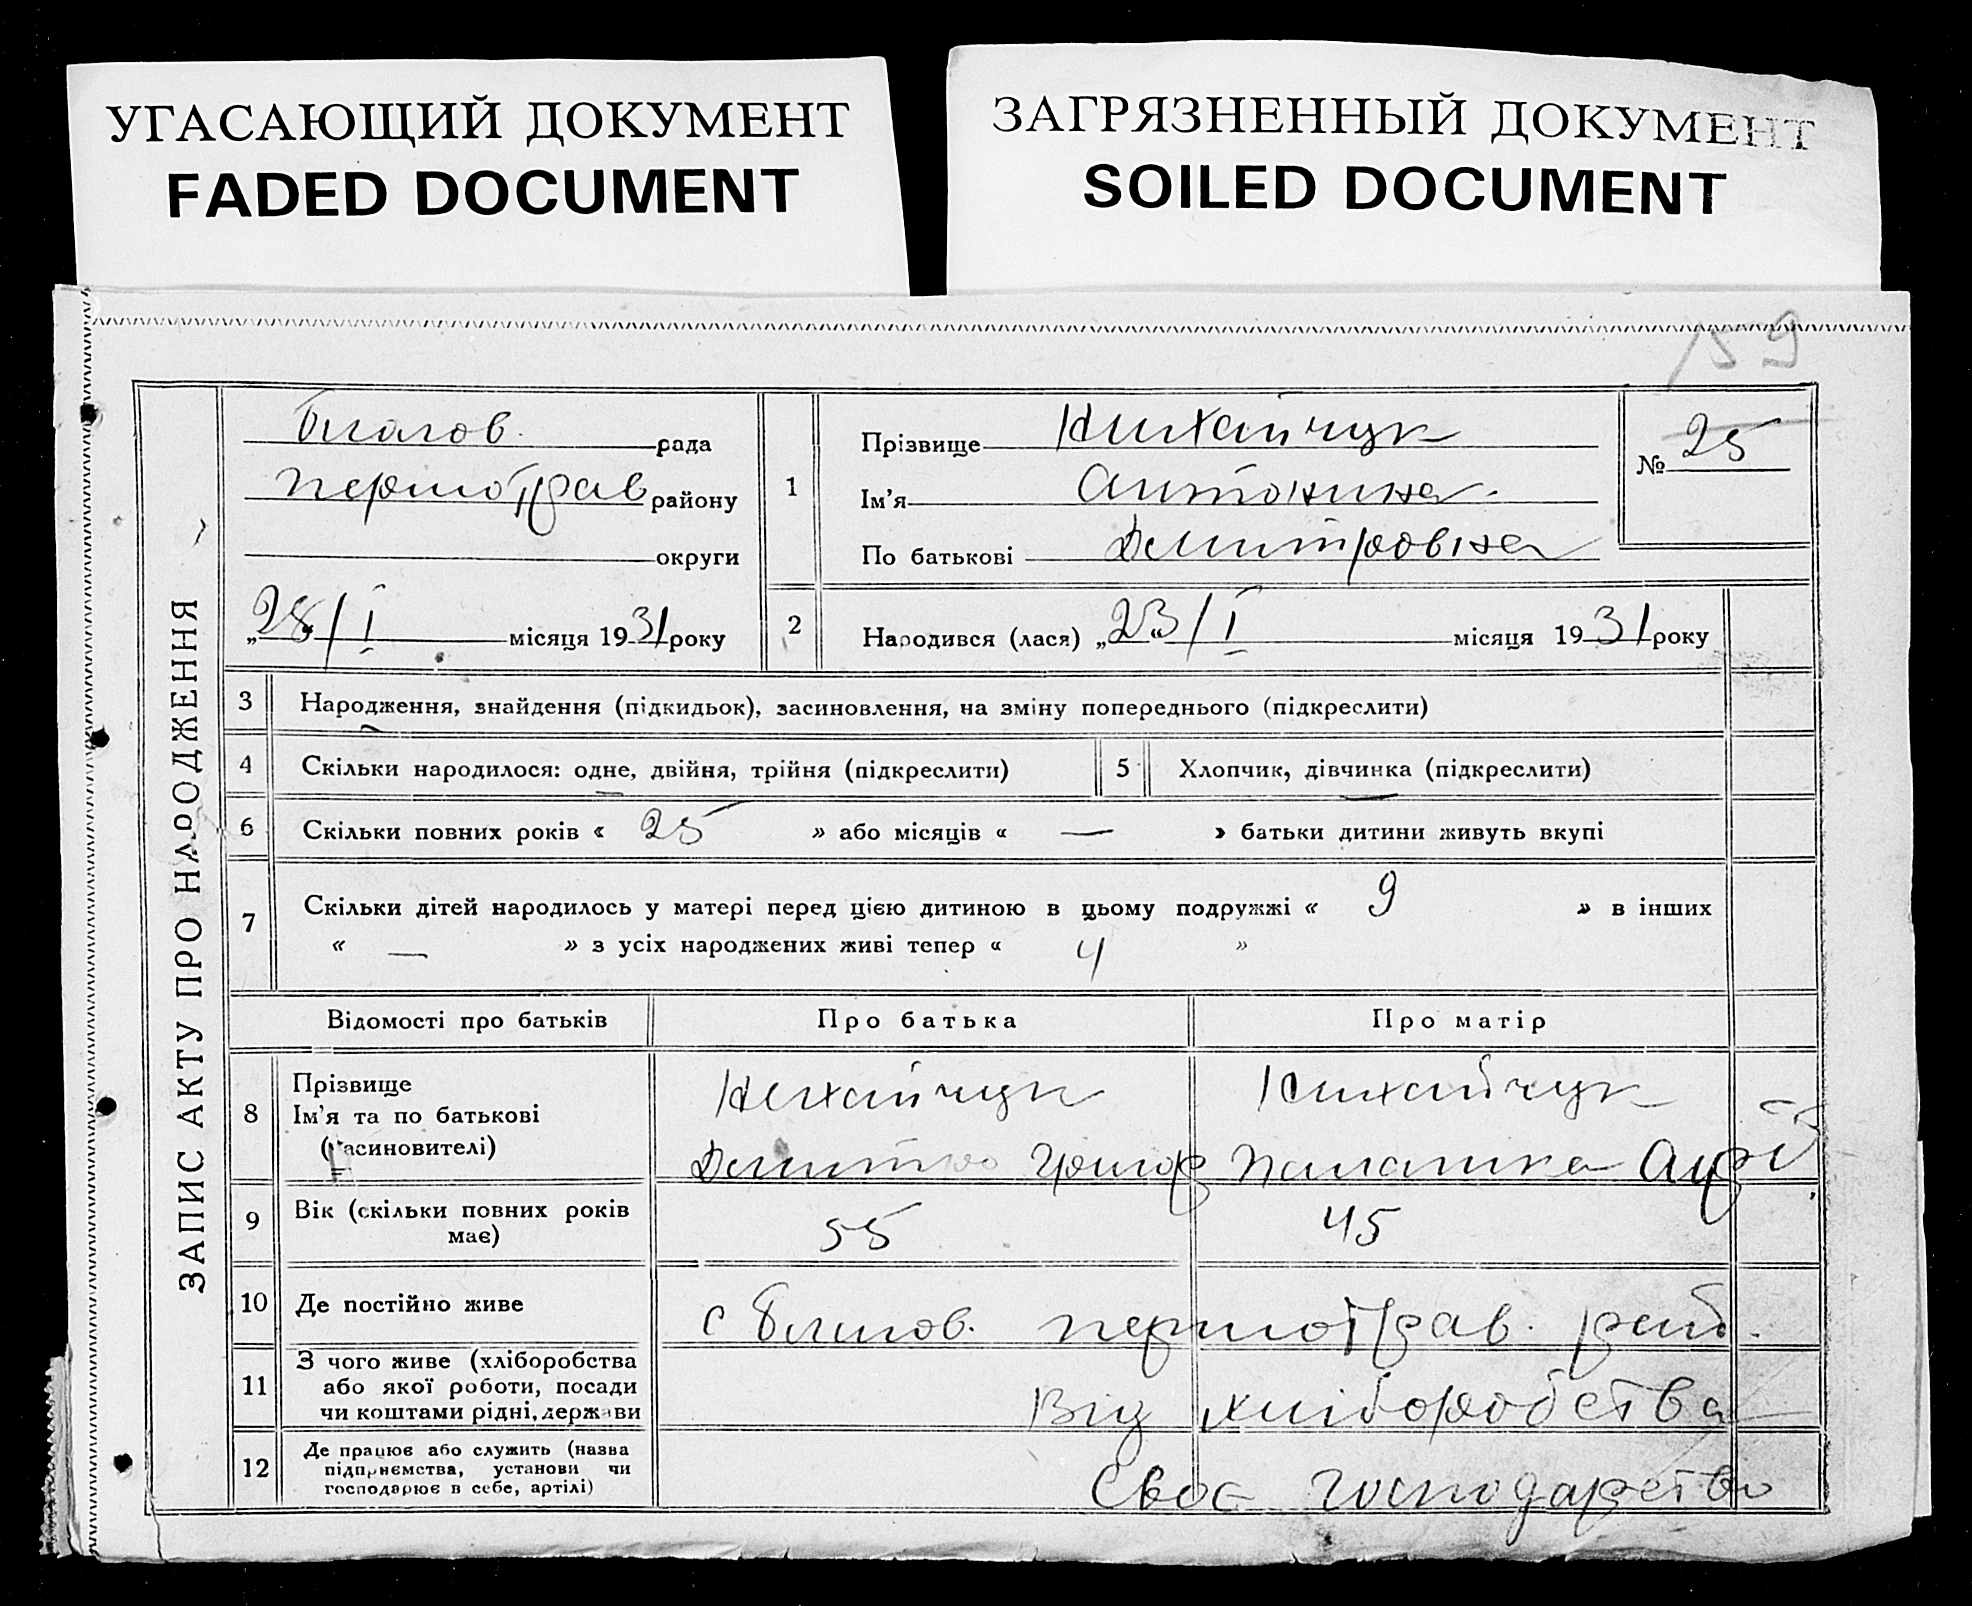 УГАСАЮЩИЙ ДОКУМЕНТ
FADED DOCUMENT
ЗАГРЯЗНЕННЫЙ ДОКУМЕНТ
SOILED DOCUMENT
159
ЗАПИС АКТУ ПРО НАРОДЖЕННЯ
рада
першотрав району
округи
„28/I місяця 1931 року
1
Прізвище
Ім'я Антоніна
По батькові Дмитровна
№ 25
2
Народився (лася) „23/I місяця 1931 року
3 Народження, знайдення (підкидьок), засиновлення, на зміну попереднього (підкреслити)
4 Скільки народилося: одне, двійня, трійня (підкреслити)
5 Хлопчик, дівчинка (підкреслити)
6 Скільки повних років « 25 » або місяців « — » батьки дитини живуть вкупі
7 Скільки дітей народилось у матері перед цією дитиною в цьому подружжі « 9 » в інших
« — » з усіх народжених живі тепер « 4 »
Відомості про батьків Про батька Про матір
8 Прізвище
Ім'я та по батькові
(засиновителі)
Дмитро Григор
9 Вік (скільки повних років
має)
55 45
10 Де постійно живе с першотрав. рай.
11 З чого живе (хліборобства
або якої роботи, посади
чи коштами рідні, держави
Від хліборобства
12 Де працює або служить (назва
підприємства, установи чи
господарює в себе, артілі)
Своє господарство